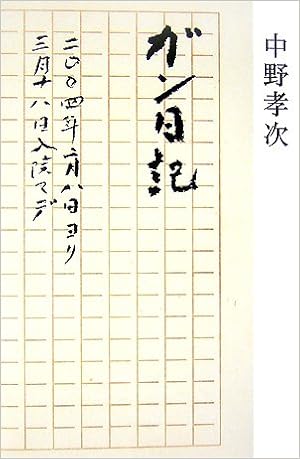 中野孝次
ガン日記
二〇〇四年二月八日ヨリ
三月十八日入院マデ